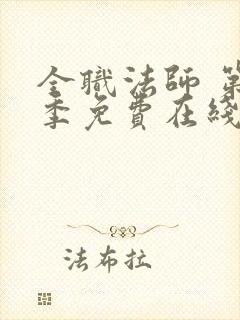 全職法師 第
季免費在綫
法布拉